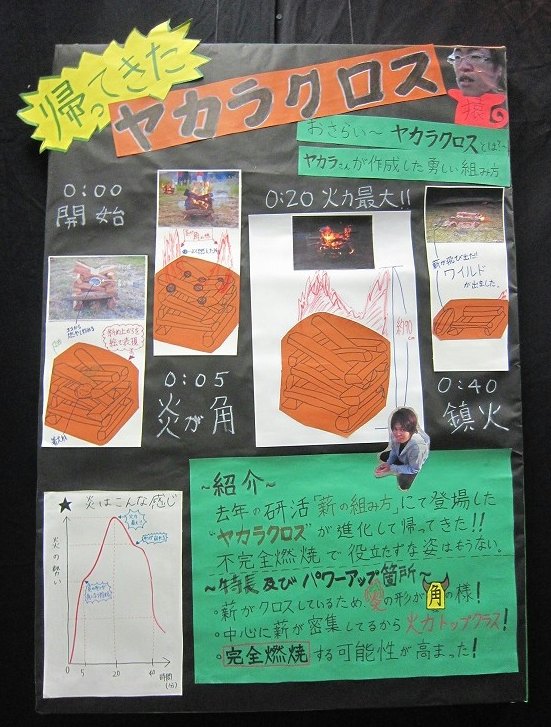 帰ってきた
ヤカラクロス
猿
おさらい〜ヤカラクロスとは?〜
ヤカラさんが作成した勇しい組み方
0:00
開始
0:05
炎が角
0:20 火力最大!!
約90cm
薪が飛び出た!
ワイルド
が出ました。
0:40
鎮火
斜め上からを
絵で表現
着火剤
★炎はこんな感じ
火の勢い
5
20
40
時間
(分)
〜紹介〜
去年の研活「薪の組み方」にて登場した
"ヤカラクロス"が進化して帰ってきた!!
不完全燃焼で役立たずな姿はもうない。
〜特長及びパワーアップ箇所〜
・薪がクロスしているため炎の形が角の様!
・中心に薪が密集してるから火力トップクラス!
・完全燃焼する可能性が高まった!